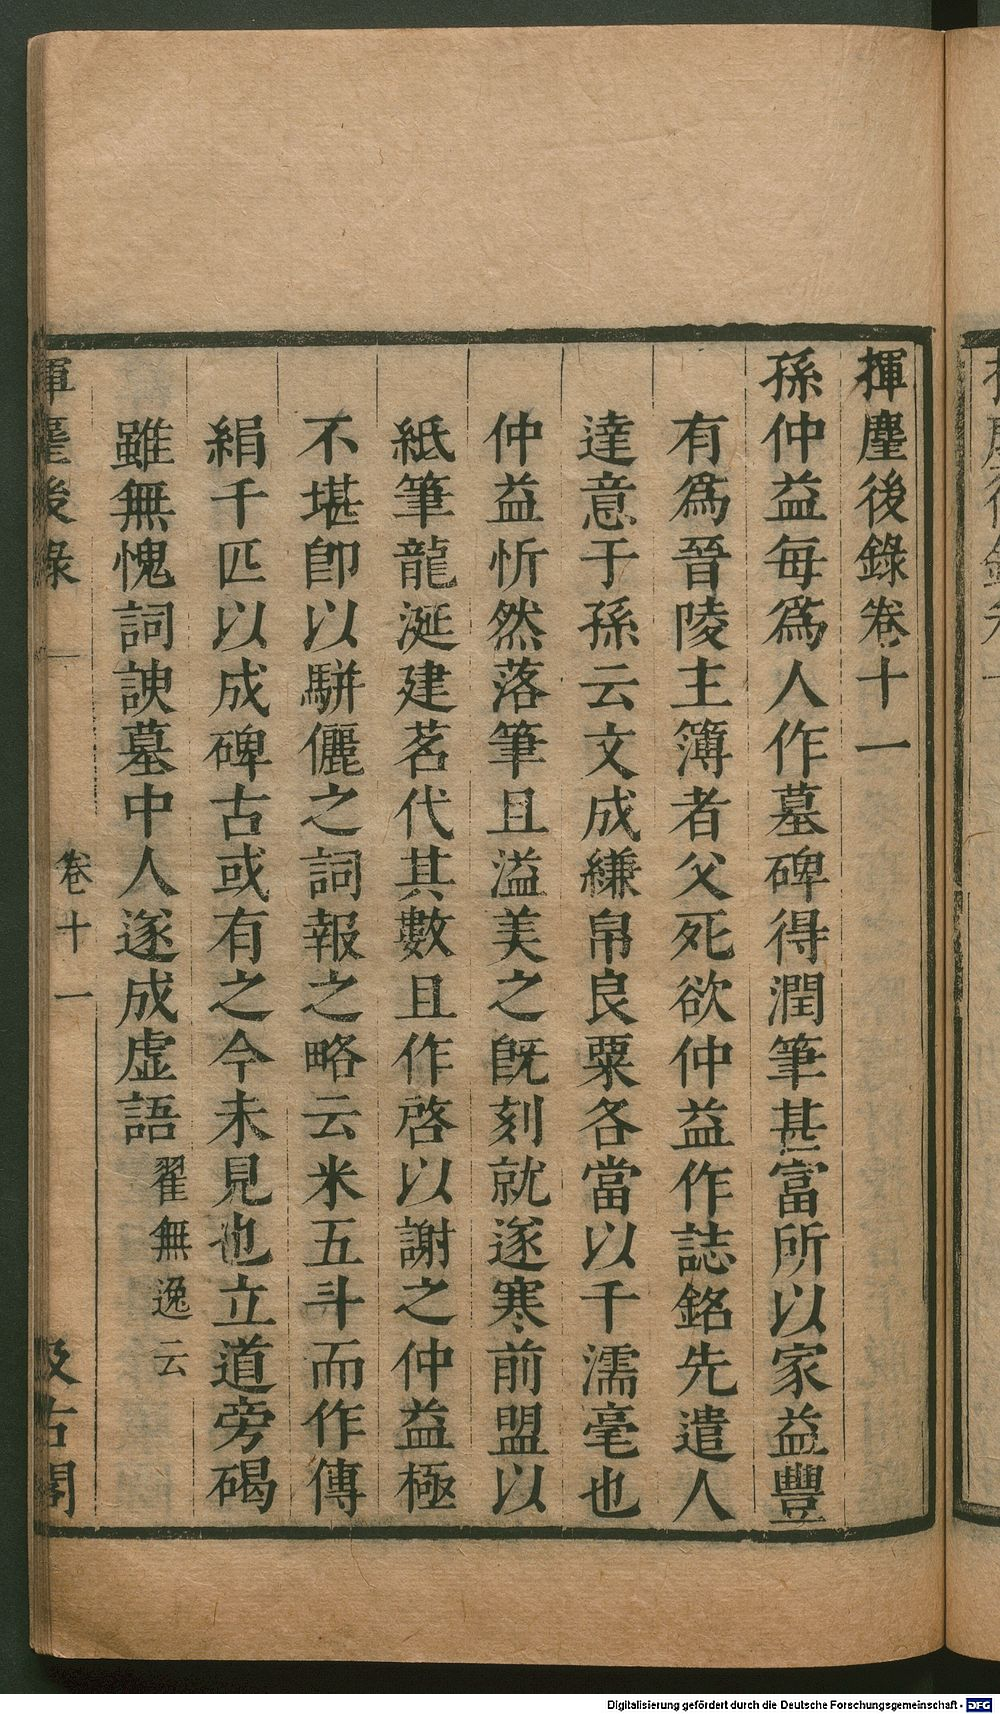 揮麈後錄卷十一
孫仲益每爲人作墓碑得潤筆甚富所以家益豐
有爲晉陵主簿者父死欲仲益作誌銘先遣人
達意于孫云文成縑帛良粟各當以千濡毫也
仲益忻然落筆且溢美之旣刻就遂寒前盟以
紙筆龍涎建茗代其數且作啓以謝之仲益極
不堪卽以駢儷之詞報之略云米五斗而作傳
絹千匹以成碑古或有之今未見也立道旁碣
雖無愧詞諛墓中人遂成虛語 翟無逸云
揮麈後錄 卷十一 汲古閣
Digitalisierung gefördert durch die Deutsche Forschungsgemeinschaft - DFG